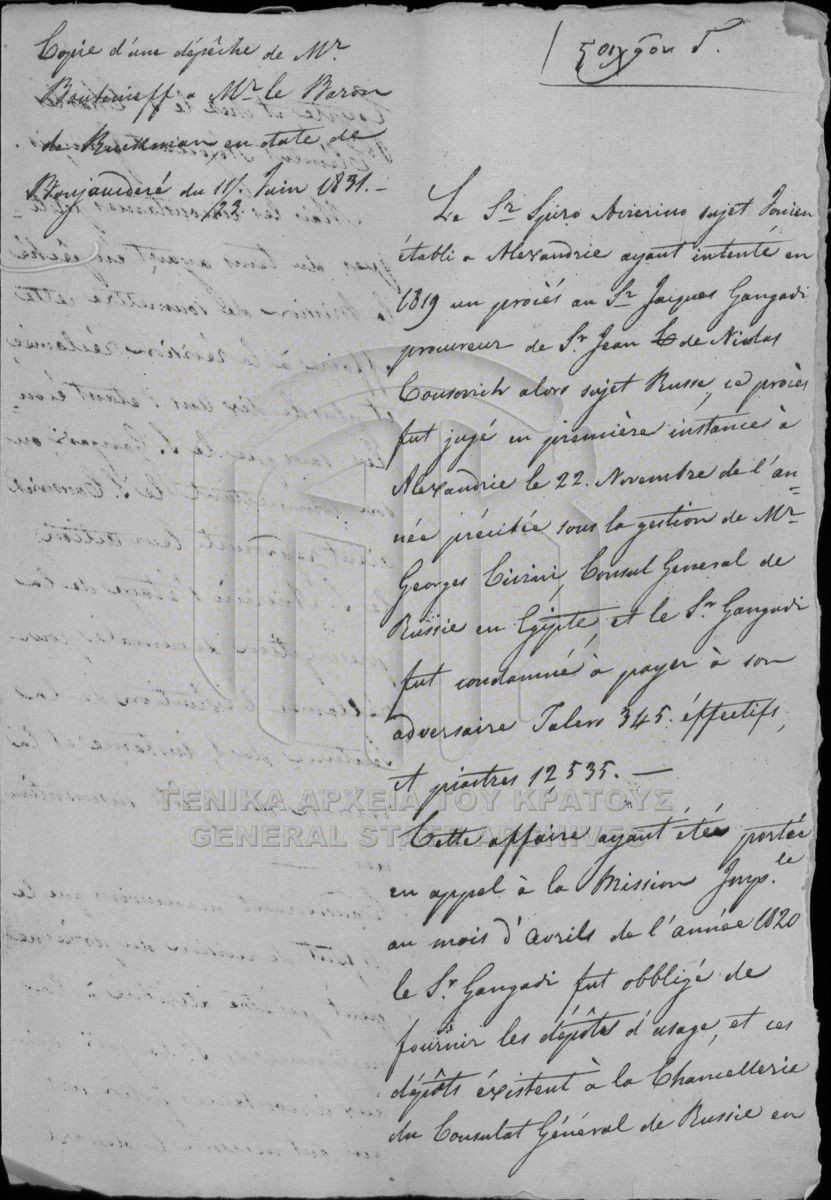 Copie d'une dépêche de Mr
Bouteneff a Mr le Baron
de Ruckman en date de
Boujoucderé du 11/23 Juin 1831. —
Le Sr Spiro Avierino sujet Jonien
établi a Alexandrie ayant intenté en
1819 un procés au Sr Jacques Gangadi
procureur de Sr Jean de Nicolas
Cousovich alors sujet Russe, ce procès
fut jugé en première instance à
Alexandrie le 22. Novembre de l'an=
née précitée sous la gestion de Mr
Georges Civini, Consul General de
Russie en Egipte, et le Sr Gangadi
fut condamné à payer à son
adversaire Talers 345. éffectifs,
et piastres 12535. —
Cette affaire ayant été portée
en appel à la Mission Jmp.le
au mois d'avrils de l'année 1820
le Sr Gangadi fut obbligé de
fournir les dépôts d'usage, et ces
dépôts éxistent à la Chancellerie
du Consulat Général de Russie en
ΓΕΝΙΚΑ ΑΡΧΕΙΑ ΤΟΥ ΚΡΑΤΟΥΣ
GENERAL STATE ARCHIVES